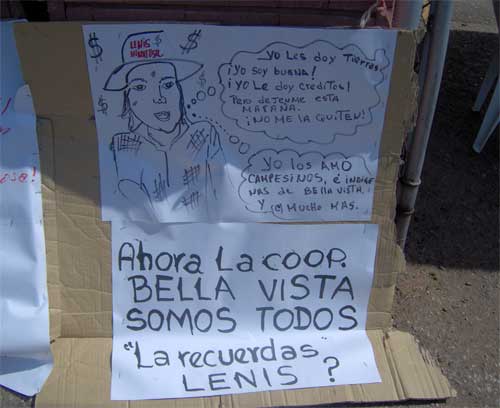 $ LENIS $
$
$
Yo Les doy Tierras
¡Yo soy buena!
¡Yo Le doy creditos!
Pero dejenme esta
¡NO ME LA QUITEN!
Yo los AMO
CAMPESINOS, é INDIGE
NAS de BELLA VISTA.
Y MUCHO MAS.
Ahora La COOP.
BELLA VISTA
SOMOS TODOS
"La recuerdas"
LENIS ?